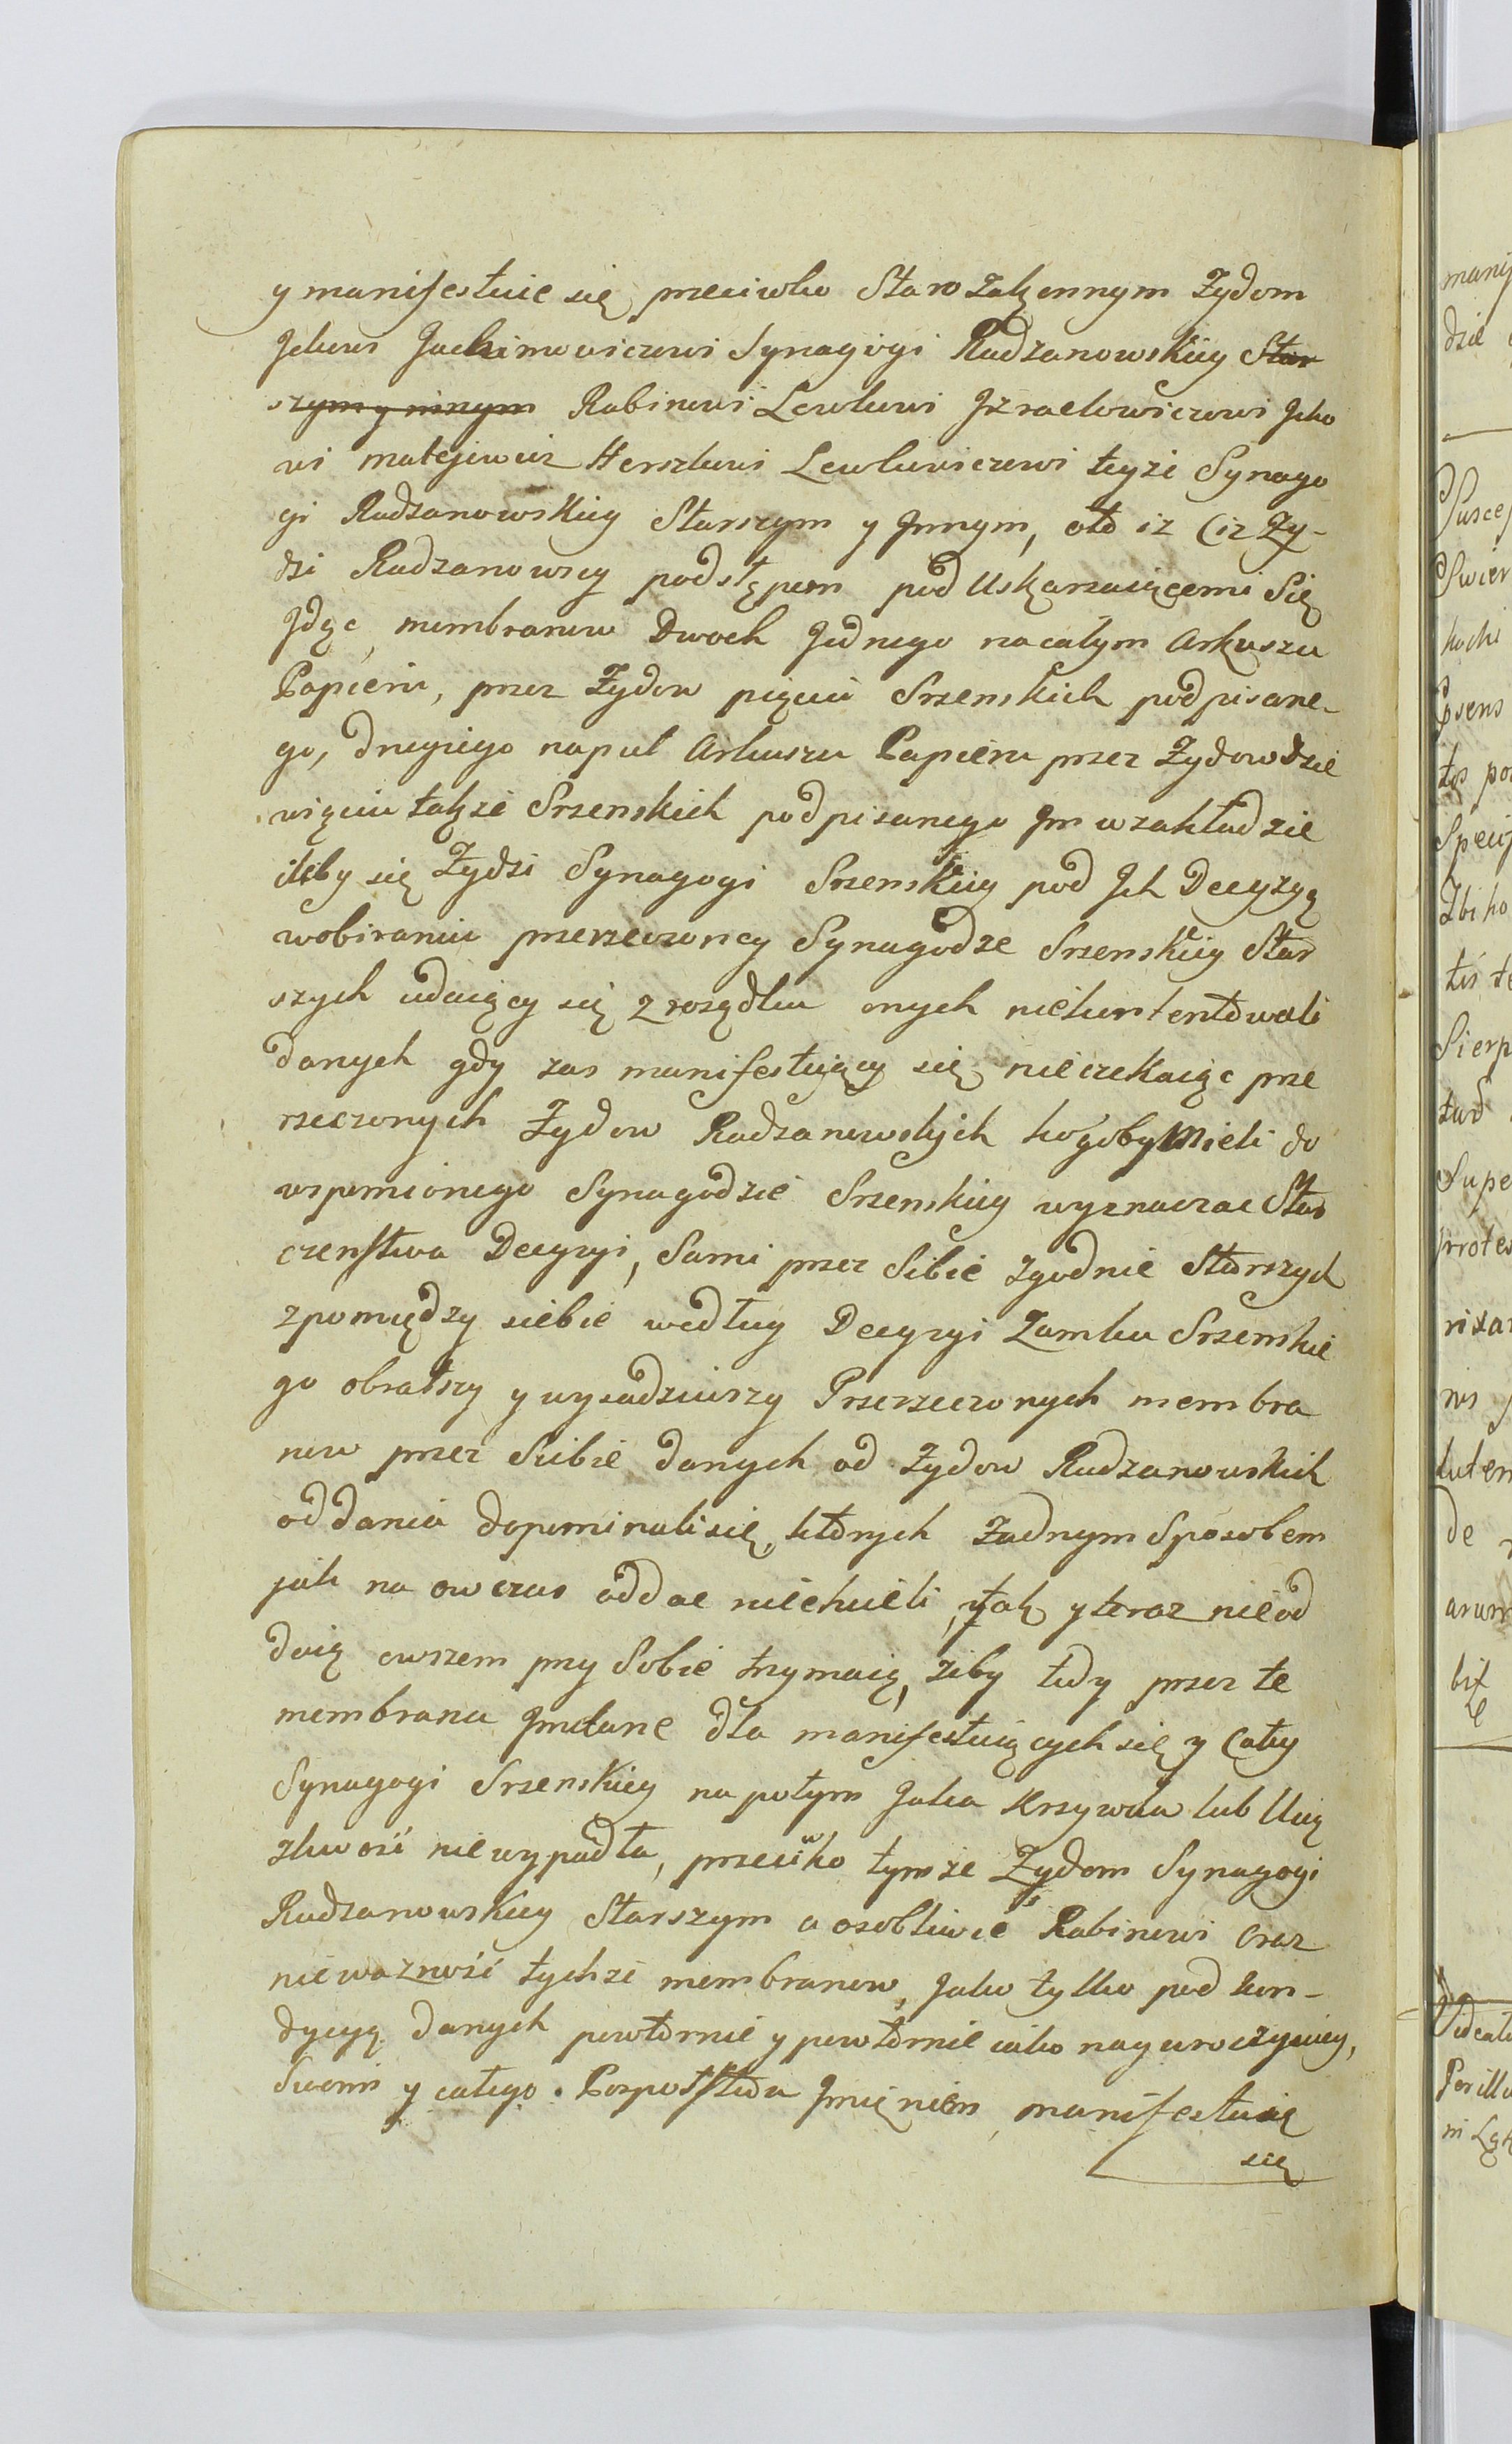 y manifestuie się przeciwko Starozakonnym Żydom
Jckowi Jachimowiczowi Synagogi Radzanowskiey Star
szym y innym Rabinowi Lewkowi Jzraelowiczowi Jcko
wi Matejowicz Herszkowi Lewkowiczowi teyże Synago
gi Radzanowskiey Starszym y Jnnym, oto iż Ciż Ży-
dzi Radzanowscy podstępem pod Uskarzaiącemi Się
Jdąc, membranow Dwoch Jednego na całym Arkuszu
Papieru, przez Żydow pięciu Srzenskich podpisane-
go, drugiego na puł Arkuszu Papieru przez Żydow dzie
więciu także Srzenskich podpisanego Jm w zakładzie
iżeby się Żydzi Synagogi Srzenskiey pod Jch Decyzyą
w obiraniu przerzeczoney Synagodze Srzenskiey Star
szych udaiący się z rosądku onych niekontentowali
danych gdy zas manifestuiący się nieczekaiąc prze
rzeczonych Żydow Radzanowskich kogoby Mieli do
wspomionego Synagodzie Srzenskiey wyznaczac Star
czenstwa Decyzyi, Sami przez Siebie zgodnie Starszych
z pomiędzy siebie według Decyzyi Zamku Srzenskie
go obrawszy y wysadziwszy Przerzeczonych membra
now przez Siebie danych od Żydow Radzanowskich
oddania dopominali się, ktorych żadnym Sposobem
jak na ow czas oddac niechcieli, tak y teraz nie od
daią owszem przy Sobie trzymaią, żeby tedy przez te
membrana Jm dane dla manifestuiących się y Całey
Synagogi Srzenskiey na potym Jaka Krzywda lub Uciąż
zliwość nie wypadła, przeciwko tymże Żydom Synagogi
Radzanowskiey Starszym a osobliwie Rabinowi oraz
nieważność tychże membranow, Jako tylko pod kon-
dycyą danych powtornie y powtornie iako nayuroczyściey,
Swoim y całego Pospolstwa Jmięniem, manifestuią
się